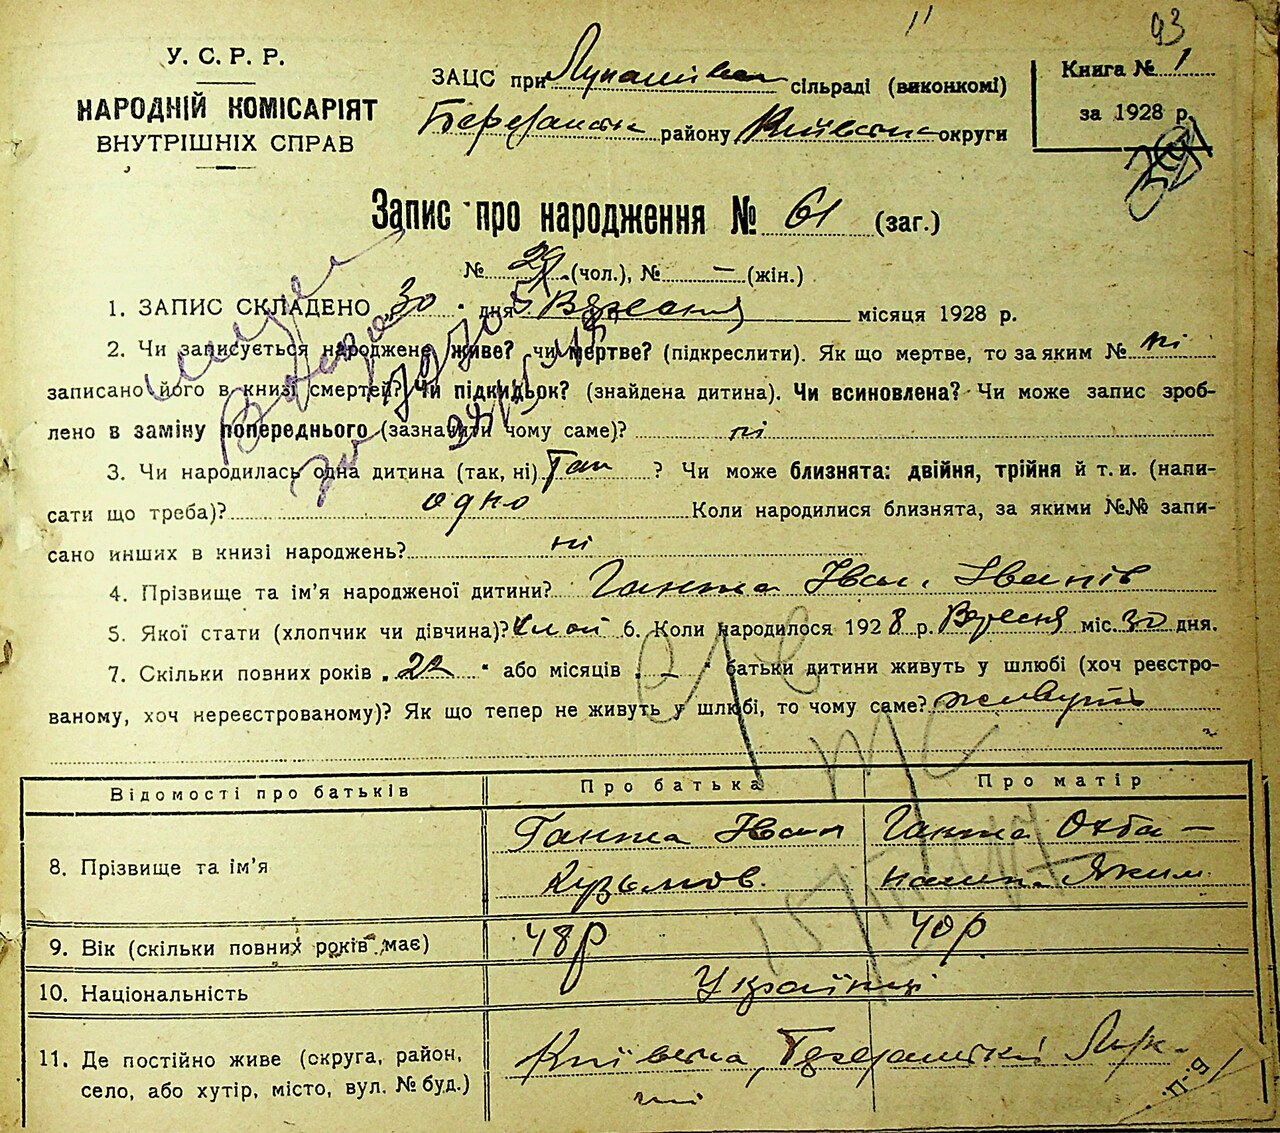 93
У. С. Р. Р.
НАРОДНІЙ КОМІСАРІЯТ
ВНУТРІШНІХ СПРАВ
ЗАЦС при сільраді (виконкомі)
району Київська округи
Книга № 1
за 1928 р.
Запис про народження № 61 (заг.)
№ 29 (чол.), № – (жін.)
1. ЗАПИС СКЛАДЕНО „30" дня Вересня місяця 1928 р.
2. Чи записується народжене живе? чи мертве? (підкреслити). Як що мертве, то за яким № ні
записано його в книзі смертей? Чи підкидьок? (знайдена дитина). Чи всиновлена? Чи може запис зроб-
лено в заміну попереднього (зазначити чому саме)? ні
3. Чи народилась одна дитина (так, ні) Так ? Чи може близнята: двійня, трійня й т. и. (напи-
сати що треба)? одно Коли народилися близнята, за якими №№ запи-
сано инших в книзі народжень? ні
4. Прізвище та ім'я народженої дитини? Ганжа Іван Іванів
5. Якої стати (хлопчик чи дівчина)? 6. Коли народилося 1928 р. Вересня міс. 30 дня.
7. Скільки повних років „22" або місяців „-" батьки дитини живуть у шлюбі (хоч реєстро-
ваному, хоч нереєстрованому)? Як що тепер не живуть у шлюбі, то чому саме? живуть
Відомості про батьків Про батька Про матір
8. Прізвище та ім'я Ганжа Іван Кузьмов. Ганжа
9. Вік (скільки повних років має) 48р 40р
10. Національність Українці
11. Де постійно живе (округа, район, Київська,
село, або хутір, місто, вул. № буд.)